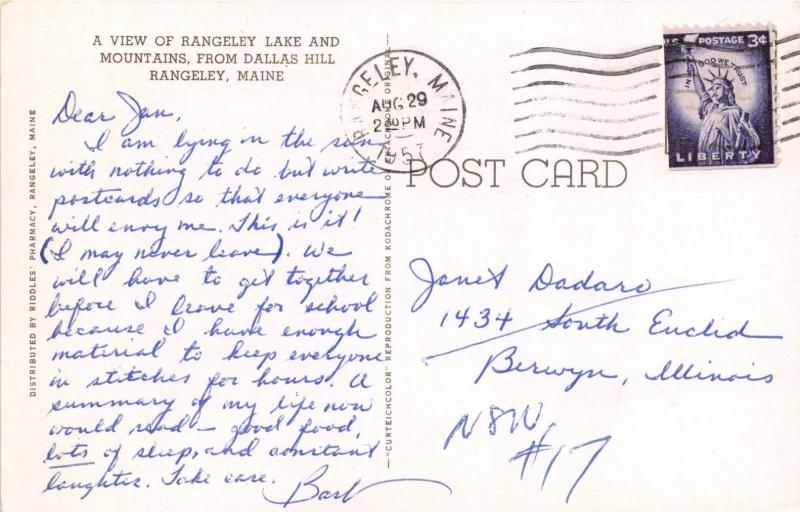 A VIEW OF RANGELEY LAKE AND
MOUNTAINS, FROM DALLAS HILL
RANGELEY, MAINE
Dear Jan,
I am lying in the sun
with nothing to do but write
postcards so that everyone
will envy me. This is it!
(I may never leave). We
will have to get together
before I leave for school
because I have enough
material to keep everyone
in stitches for hours. A
summary of my life now
would read - good food,
lots of sleep, and constant
laughter. Take care.
Barb
DISTRIBUTED BY RIDDLES' PHARMACY, RANGELEY, MAINE
"CURTEICHCOLOR" REPRODUCTION FROM KODACHROME OR EKTACHROME ORIGINAL
RANGELEY, MAINE
AUG 29
2 30 PM
195
U.S. POSTAGE 3¢
IN GOD WE TRUST
LIBERTY
POST CARD
Janet Dadaro
1434 South Euclid
Berwyn, Illinois
#17